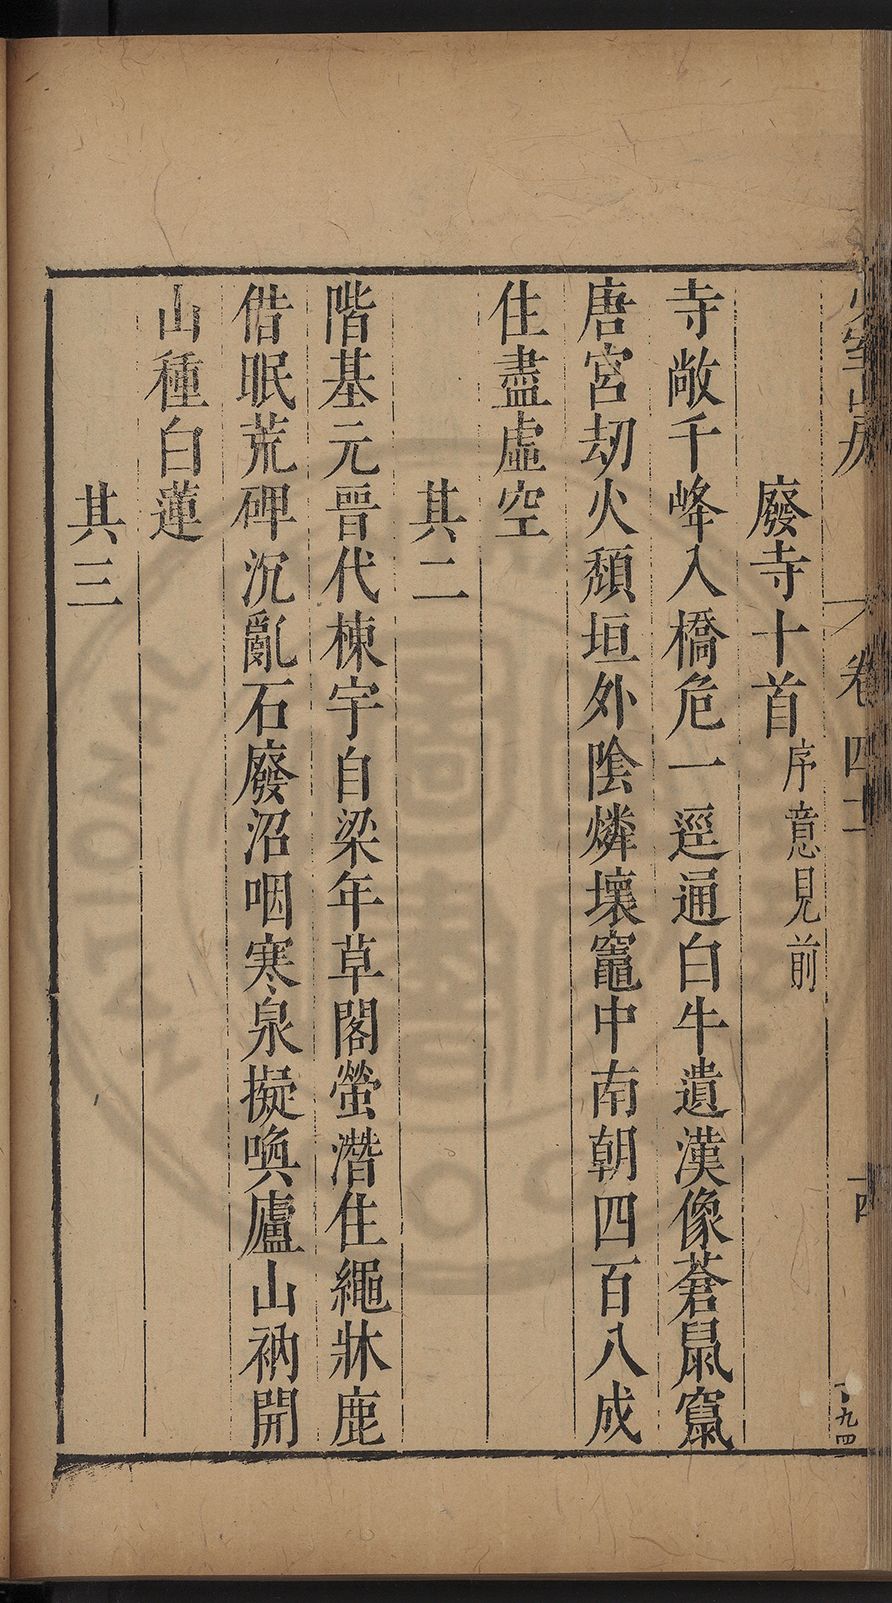 少室山房 卷四二 十四
丁九四
廢寺十首序意見前
寺敞千峰入橋危一逕通白牛遺漢像蒼鼠竄
唐宮刼火頹垣外陰燐壞竈中南朝四百八成
住盡虛空
其二
階基元晉代棟宇自梁年草閣螢潛住繩牀鹿
借眠荒碑沉亂石廢沼咽寒泉擬喚廬山衲開
山種白蓮
其三